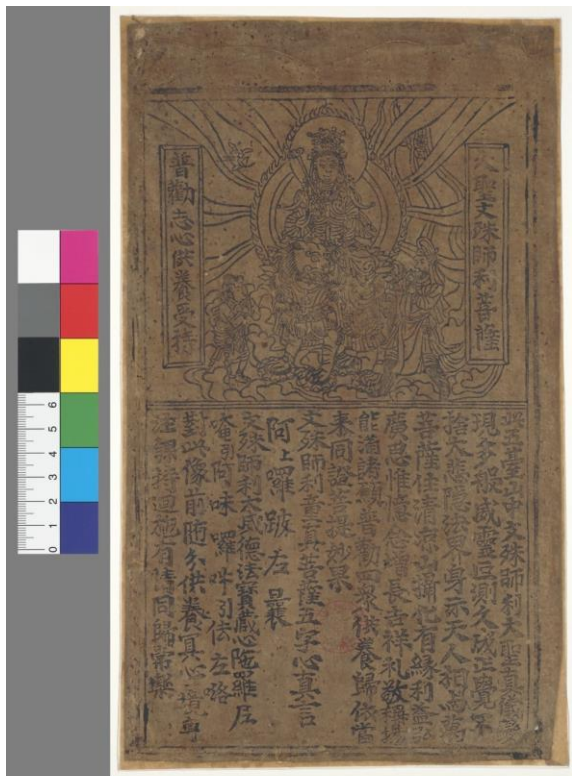 大聖文殊師利菩薩
普勸志心供養受持
此五臺山中文殊師利大聖真儀變
現多般威靈叵測久成正覺不
捨大悲隱法界身示天人相與萬
菩薩住清涼山攝化有緣利益弘
廣思惟憶念增長吉祥礼敬稱揚
能滿諸願普勸四眾供養歸依當
來同證菩提妙果
文殊師利童真菩薩五字心真言
阿上囉跛左曩
文殊師利大威德法寶藏心陀羅尼
唵引阿味囉吽引佉左路
對此像前隨分供養冥心一境專
注課持迴施有情同歸常樂
6
5
4
3
2
1
0